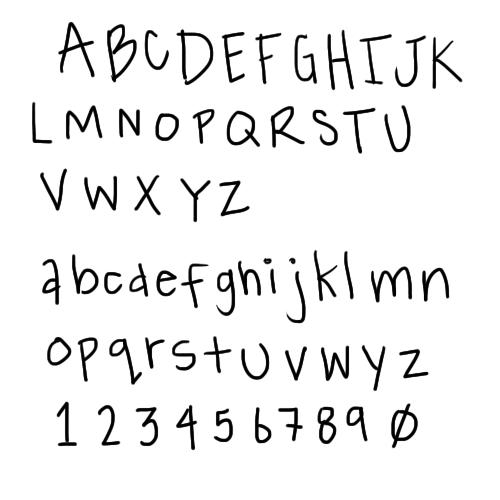 ABCDEFGHIJK
LMNOPQRSTU
VWXYZ
abcdefghijklmn
opqrstuvwyz
1234567890